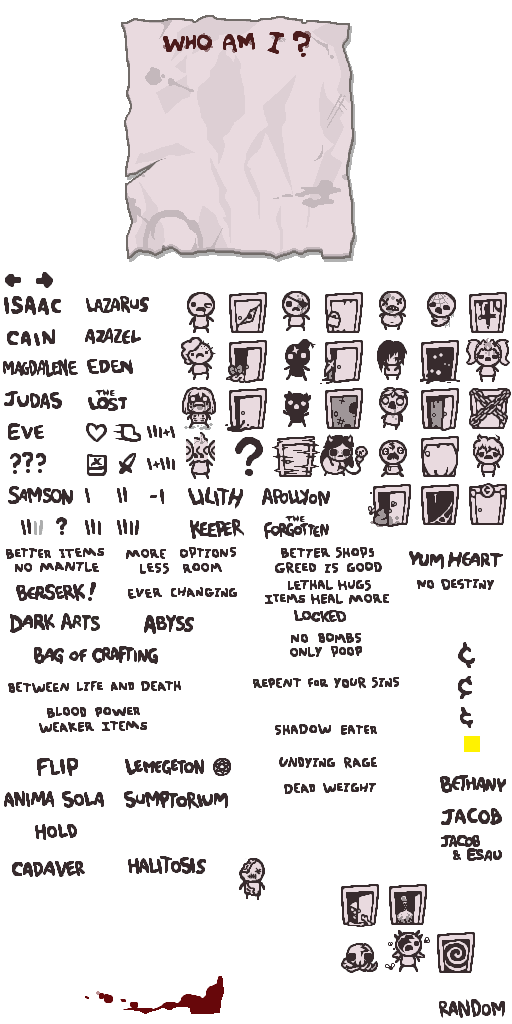 WHO AM I ?
ISAAC
LAZARUS
CAIN
AZAZEL
MAGDALENE
EDEN
JUDAS
THE
LOST
EVE
III+I
???
I+III
?
SAMSON
I
II
-I
LILITH
APOLLYON
IIII
?
III
IIII
KEEPER
THE
FORGOTTEN
BETTER ITEMS
NO MANTLE
MORE OPTIONS
LESS ROOM
BETTER SHOPS
GREED IS GOOD
YUM HEART
BERSERK!
EVER CHANGING
LETHAL HUGS
ITEMS HEAL MORE
NO DESTINY
DARK ARTS
ABYSS
LOCKED
BAG OF CRAFTING
NO BOMBS
ONLY POOP
¢
BETWEEN LIFE AND DEATH
REPENT FOR YOUR SINS
¢
BLOOD POWER
WEAKER ITEMS
SHADOW EATER
¢
FLIP
LEMEGETON
UNDYING RAGE
ANIMA SOLA
SUMPTORIUM
DEAD WEIGHT
BETHANY
HOLD
JACOB
CADAVER
HALITOSIS
JACOB
& ESAU
RANDOM